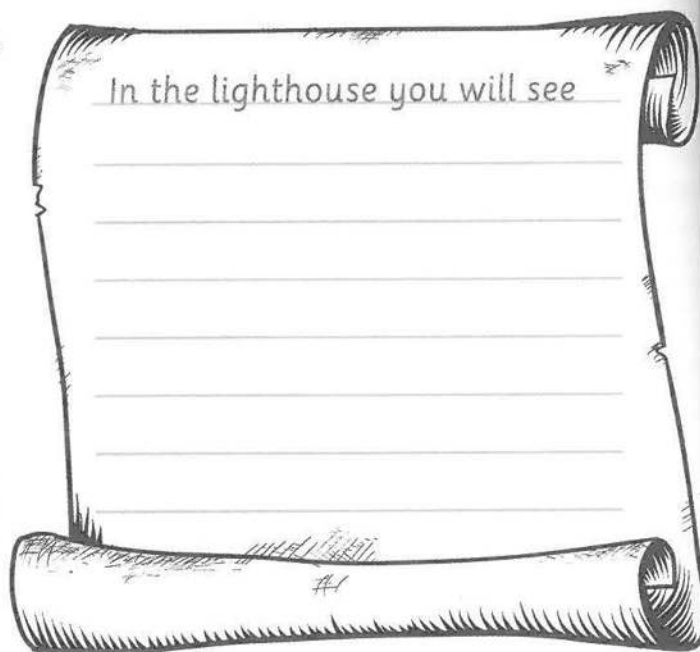 In the lighthouse you will see